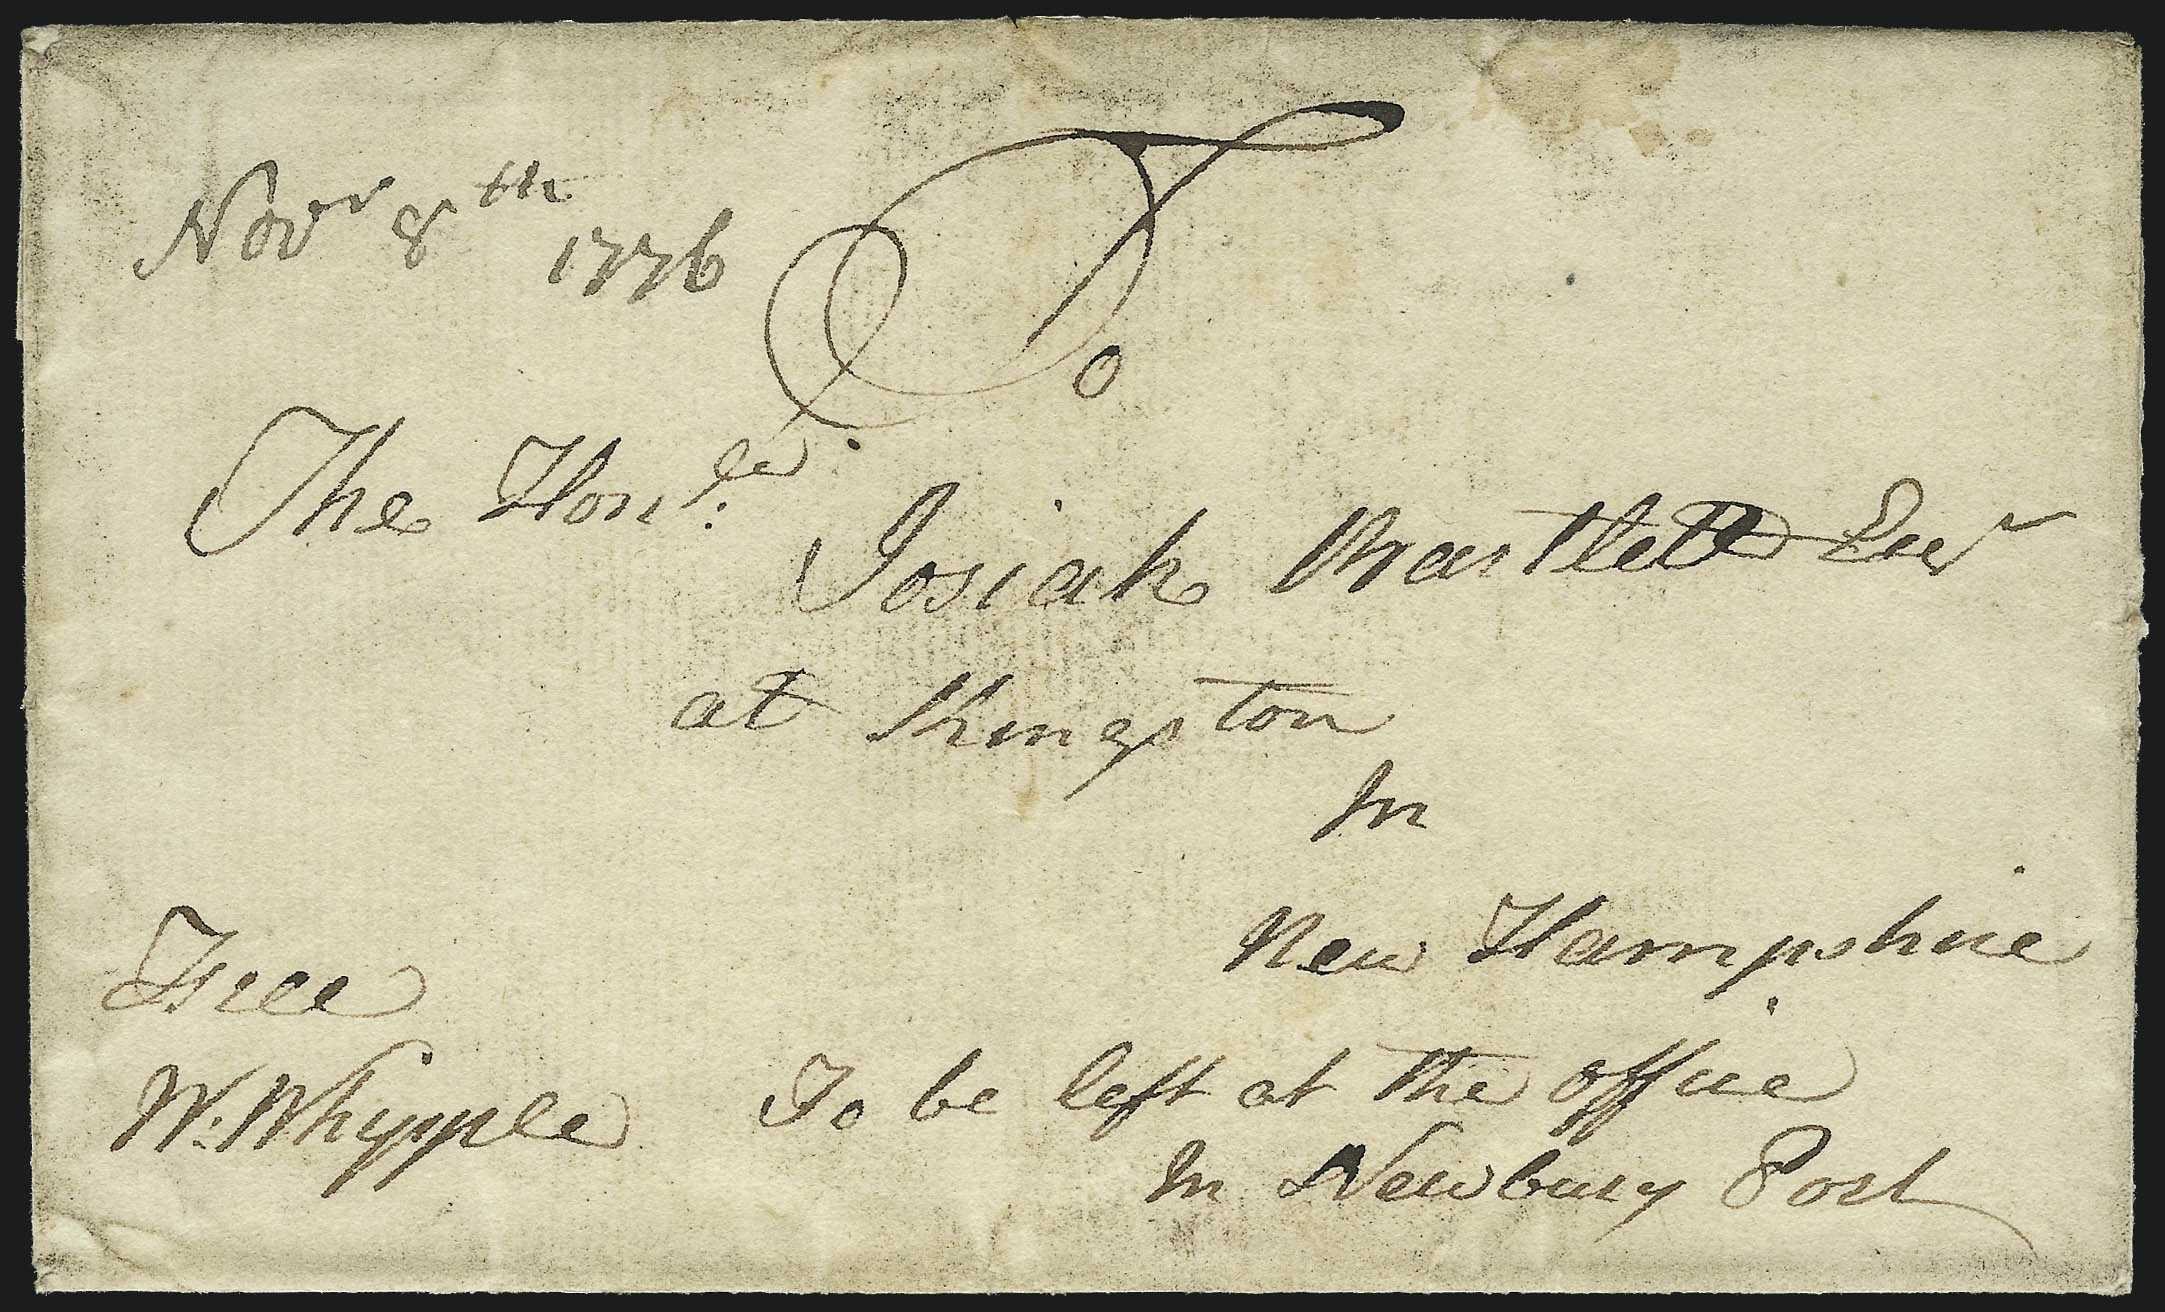 Novr 8th
1776
To
The Honle:
Josiah Bartlett Esqr
at Kingston
In
New Hampshire
Free
W: Whipple
To be left at the office
In Newbury Port